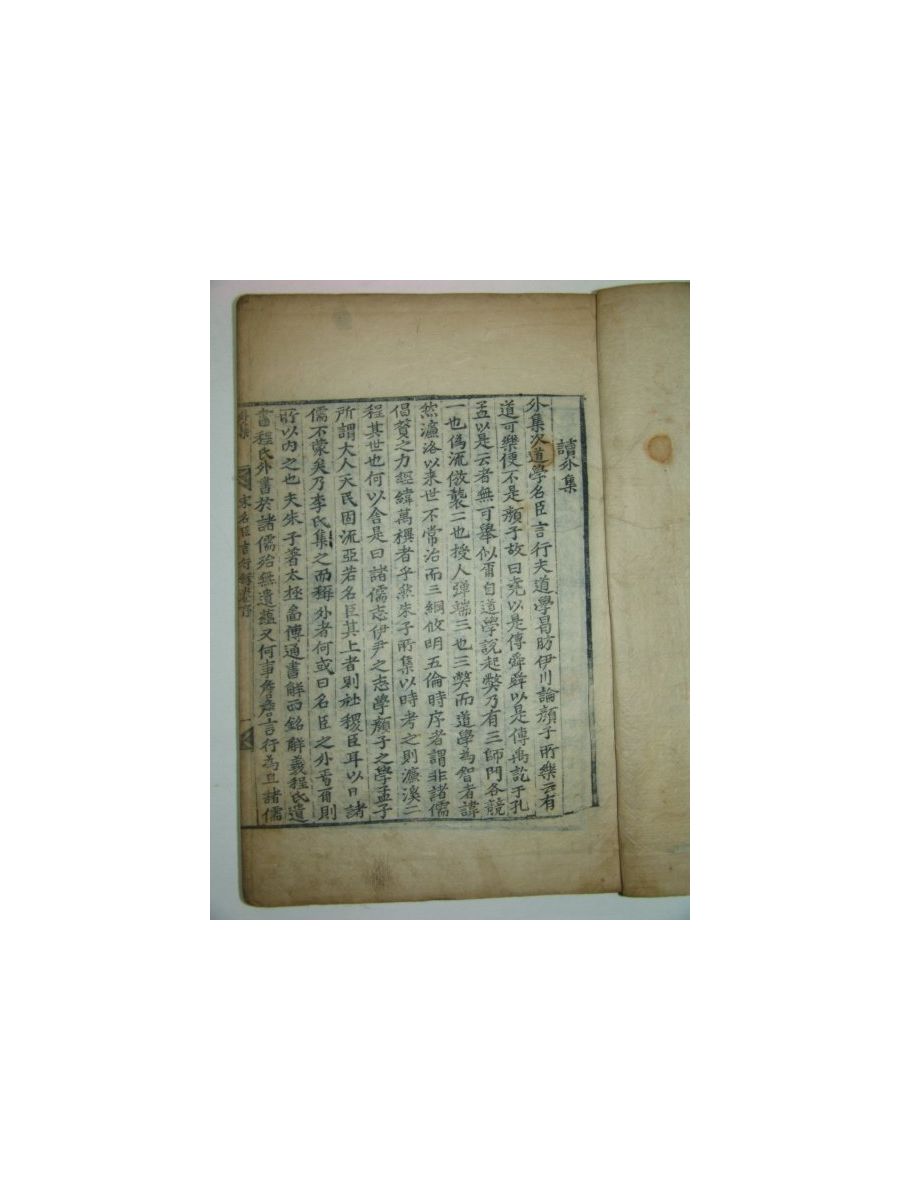 讀外集
外集次道學名臣言行夫道學昌昉伊川論顏子所樂云有
道可樂便不是顏子故曰堯以是傳舜舜以是傳禹訖于孔
孟以是云者無可舉似甭自道學說起獘乃有三師門各競
一也偽流倣襲二也授人彈端三也三獘而道學為智者諱
然濂洛以来世不常治而三綱攸明五倫時序者謂非諸儒
倡贊之力經緯萬橫者乎然朱子所集以時考之則濂溪二
程其世也何以舍是曰諸儒志伊尹之志學顏子之學孟子
所謂大人天民固流亞若名臣其上者則社稷臣耳以日諸
儒不蒙矣乃李氏集之而稱外者何或曰名臣之外焉爾則
所以内之也夫朱子著太極啚傳通書解西銘解義程氏遺
書程氏外書於諸儒殆無遺蘊又何事詹詹言行為且諸儒
外集
宋名臣言行錄 序
一